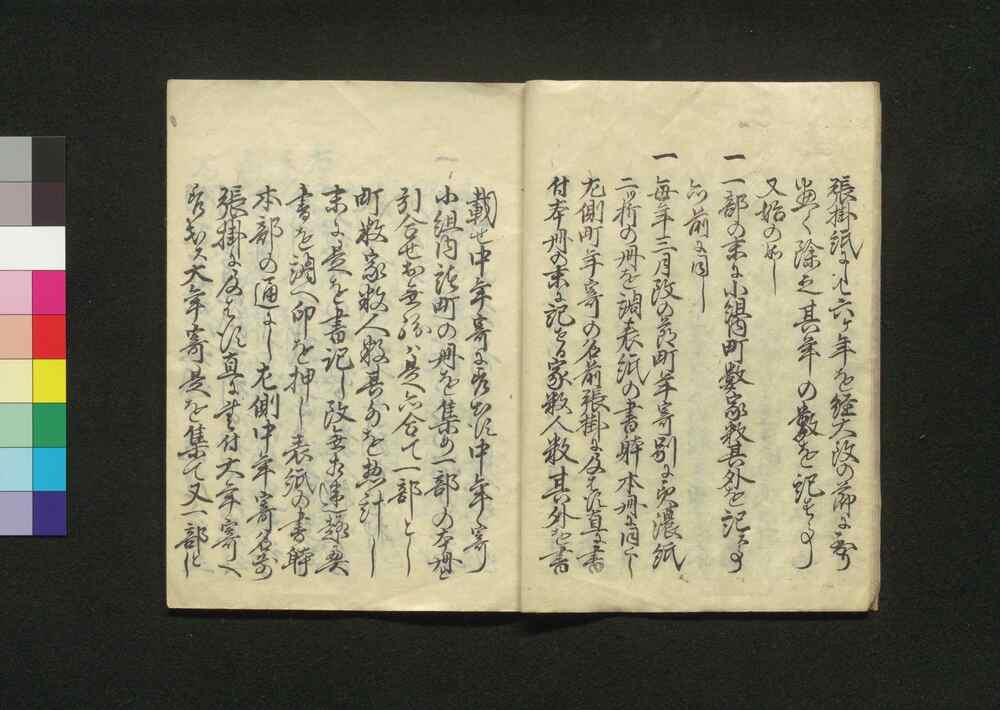 張掛紙に〆六ケ年を経大改の節に至り
悉く除之其年の数を記すへき事
又始の如し
一一部の末に小組内町数家数其外を記ス事
前に同し
一毎年三月改の節町年寄別に美濃紙
二ツ折の冊を調表紙の書躰本冊に同しく
左側町年寄の名前張掛に及はす直に書
付本冊の末に記せる家数人数其外を書
載せ中年寄に差出す中年寄
小組内諸町の冊を集め一部の本冊と
引合せ是六合て一部とし
町数家数人数其外を惣計し
末に是を書記し改無相違趣奥
書を調へ印を押し表紙の書躰
本部の通にし左側中年寄名前
張掛に及はす直に書付大年寄へ
差出ス大年寄是を集て又一部とし